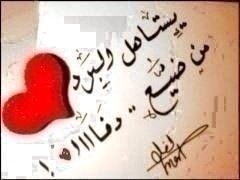 يستاهل البرد
من ضيع .. دفاااه !